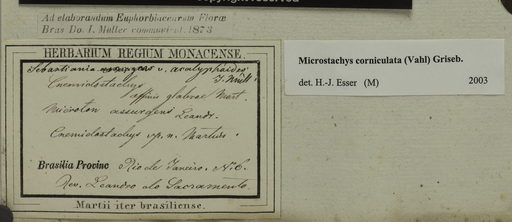 copyright reserved
Ad elaborandum Euphorbiacearum Floræ
Bras Do. I. Müller communicat. 1873
HERBARIUM REGIUM MONACENSE.
Sebastiania v. acalyphoides
J. Müll.
Cnemidostachys
affinis glabrae Mart.
Microton assurgens Leandr.
Cnemidostachys sp. n. Martius.
Brasilia Provinc Rio de Janeiro. N. 6.
Rev. Leandro do Sacramento.
Martii iter brasiliense.
Microstachys corniculata (Vahl) Griseb.
det. H.-J. Esser (M) 2003